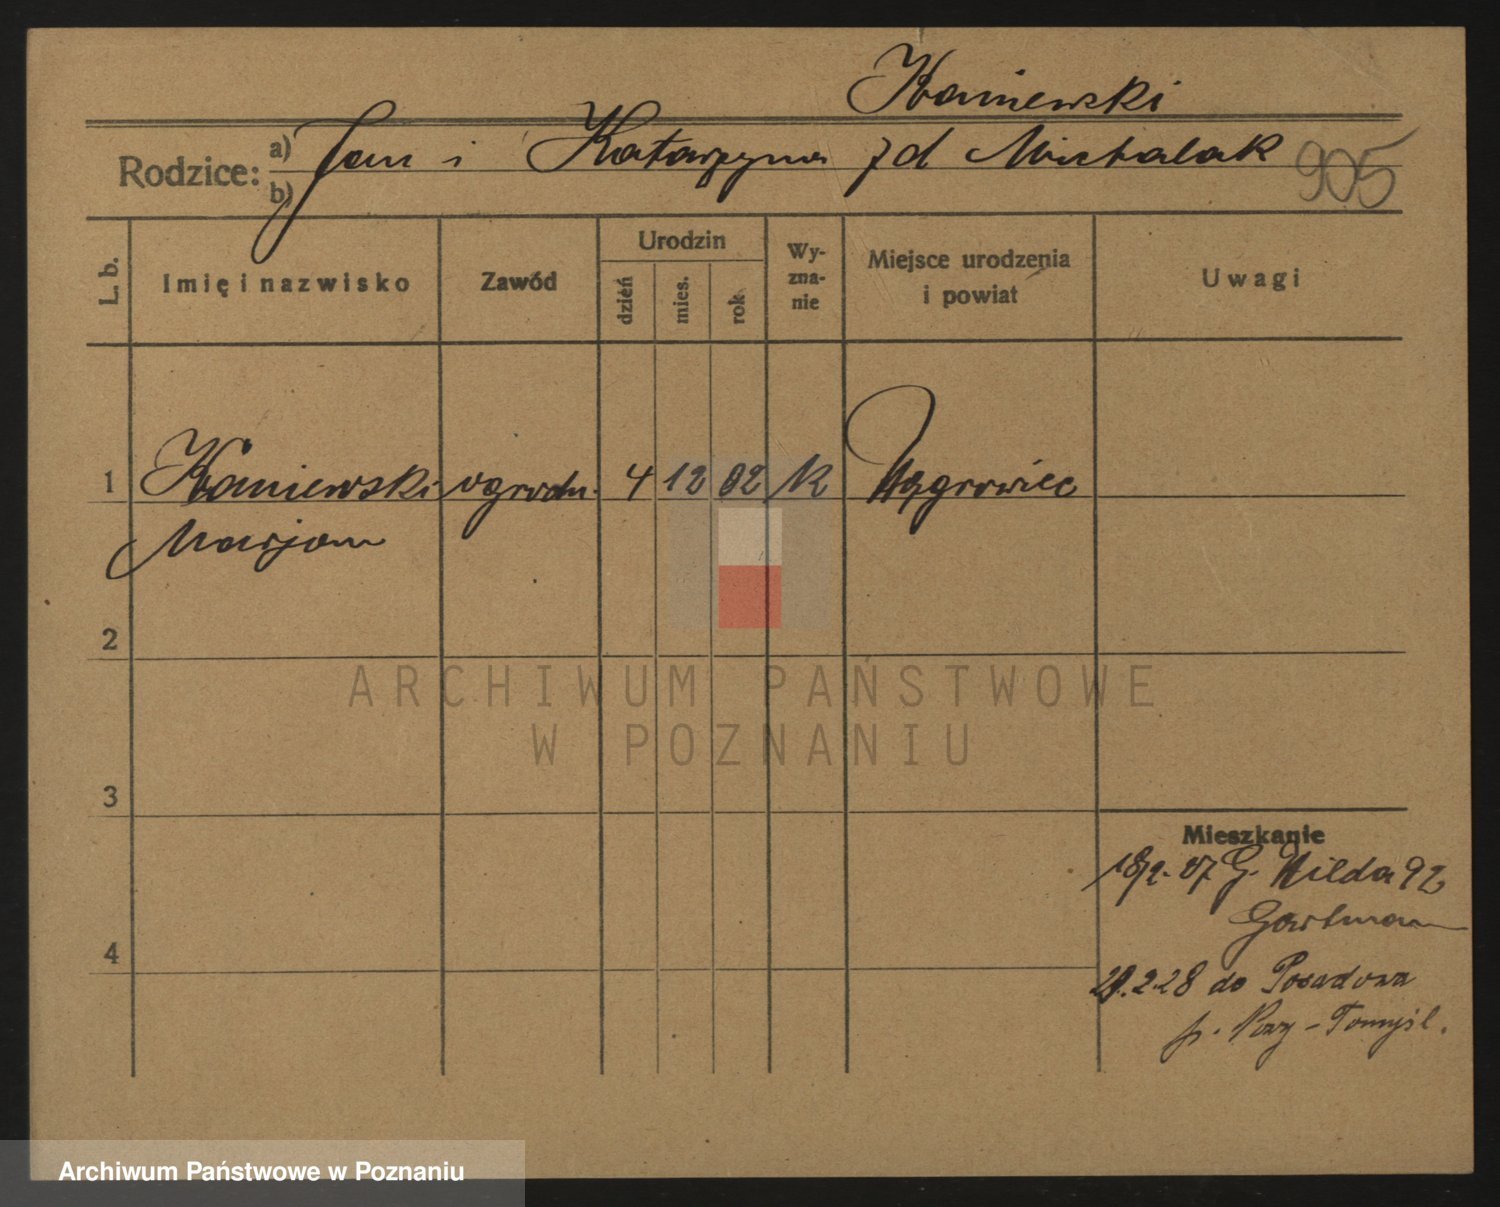 Kaniewski
Rodzice: a) Jan i Katarzyna zd Michalak 905
b)
L. b. Imię i nazwisko Zawód Urodzin dzień mies. rok Wy-zna-nie Miejsce urodzenia i powiat Uwagi
1 Kaniewski ogrodn. 4 12 02 K Wągrowiec
Marjan
2
ARCHIWUM PAŃSTWOWE
W POZNANIU
3
Mieszkanie
18/2. 27 G. Wilda 92
Gartman
4
29.2.28 do Posadowa
p. Nowy-Tomyśl.
Archiwum Państwowe w Poznaniu